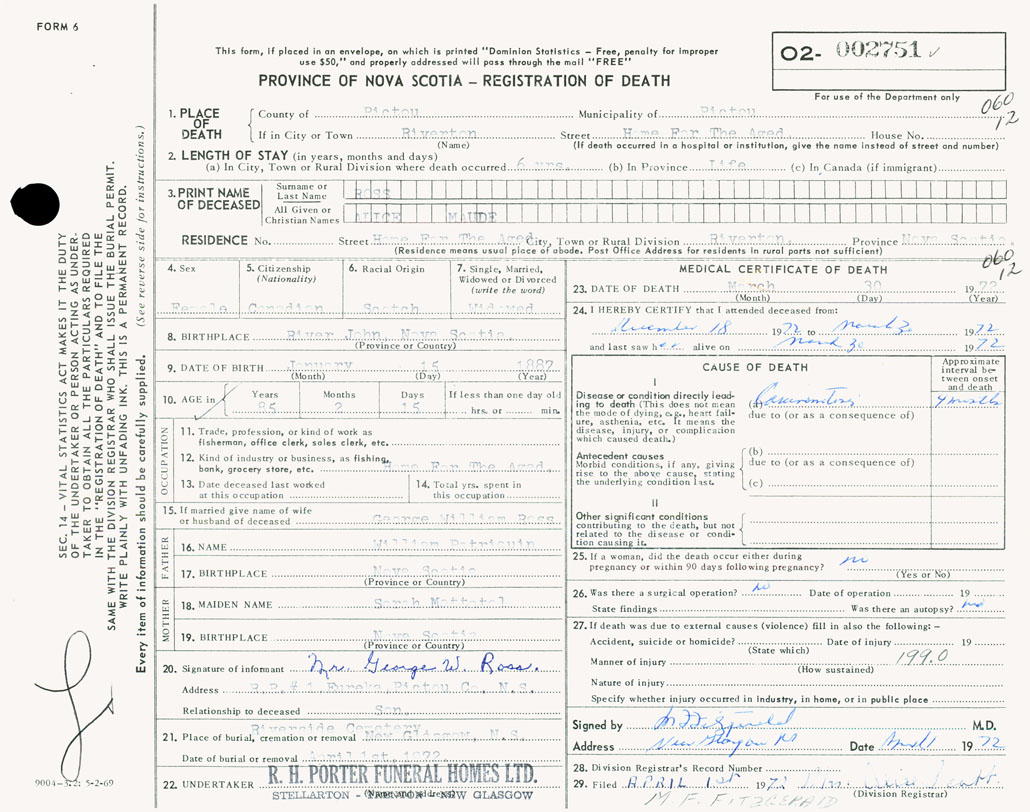 FORM 6
This form, if placed in an envelope, on which is printed "Dominion Statistics – Free, penalty for improper
use $50," and properly addressed will pass through the mail "FREE"
PROVINCE OF NOVA SCOTIA – REGISTRATION OF DEATH
O2- 002751
For use of the Department only
060
12
1. PLACE OF DEATH
County of Pictou Municipality of Pictou
If in City or Town Riverton Street Home For The Aged House No.
(Name) (If death occurred in a hospital or institution, give the name instead of street and number)
2. LENGTH OF STAY (in years, months and days)
(a) In City, Town or Rural Division where death occurred 6 yrs. (b) In Province Life (c) In Canada (if immigrant)
3. PRINT NAME OF DECEASED
Surname or Last Name ROSS
All Given or Christian Names ALICE MAUDE
RESIDENCE No. Street Home For The Aged City, Town or Rural Division Riverton, Province Nova Scotia.
(Residence means usual place of abode. Post Office Address for residents in rural parts not sufficient)
060
12
4. Sex
Female
5. Citizenship
(Nationality)
Canadian
6. Racial Origin
Scotch
7. Single, Married,
Widowed or Divorced
(write the word)
Widowed
8. BIRTHPLACE River John, Nova Scotia.
(Province or Country)
9. DATE OF BIRTH January 15 1887
(Month) (Day) (Year)
10. AGE in Years Months Days If less than one day old
85 2 15 hrs. or min.
OCCUPATION
11. Trade, profession, or kind of work as
fisherman, office clerk, sales clerk, etc.
12. Kind of industry or business, as fishing,
bank, grocery store, etc. Home For The Aged.
13. Date deceased last worked
at this occupation
14. Total yrs. spent in
this occupation
15. If married give name of wife
or husband of deceased George William Ross
FATHER
16. NAME William Patriquin
17. BIRTHPLACE Nova Scotia
(Province or Country)
MOTHER
18. MAIDEN NAME Sarah Mattatal
19. BIRTHPLACE Nova Scotia
(Province or Country)
20. Signature of informant Mr. George W. Ross.
Address R.R.# 1 Eureka, Pictou Co., N.S.
Relationship to deceased Son.
Riverside Cemetery
21. Place of burial, cremation or removal New Glasgow, N.S.
Date of burial or removal April 1st, 1972
22. UNDERTAKER R. H. PORTER FUNERAL HOMES LTD.
(Name and address)
STELLARTON - - NEW GLASGOW
MEDICAL CERTIFICATE OF DEATH
23. DATE OF DEATH March 30 1972
(Month) (Day) (Year)
24. I HEREBY CERTIFY that I attended deceased from:
December 18 1972 to March 30 1972
and last saw her alive on March 30 1972
CAUSE OF DEATH
Approximate
interval be-
tween onset
and death
I
Disease or condition directly lead-
ing to death (This does not mean
the mode of dying, e.g., heart fail-
ure, asthenia, etc. It means the
disease, injury, or complication
which caused death.)
(a) Carcinomatosis 4 months
due to (or as a consequence of)
Antecedent causes
Morbid conditions, if any, giving
rise to the above cause, stating
the underlying condition last.
(b)
due to (or as a consequence of)
(c)
II
Other significant conditions
contributing to the death, but not
related to the disease or condi-
tion causing it.
25. If a woman, did the death occur either during
pregnancy or within 90 days following pregnancy? no
(Yes or No)
26. Was there a surgical operation? no Date of operation 19
State findings Was there an autopsy? no
27. If death was due to external causes (violence) fill in also the following: –
Accident, suicide or homicide? Date of injury 19
(State which)
Manner of injury 199.0
(How sustained)
Nature of injury
Specify whether injury occurred in industry, in home, or in public place
Signed by M Fitzgerald M.D.
Address New Glasgow NS Date April 1 1972
28. Division Registrar's Record Number
29. Filed APRIL 1st 1972 Mrs.
(Division Registrar)
M F. FITZGERALD
SEC. 14 – VITAL STATISTICS ACT MAKES IT THE DUTY
OF THE UNDERTAKER OR PERSON ACTING AS UNDER-
TAKER TO OBTAIN ALL THE PARTICULARS REQUIRED
IN THE "REGISTRATION OF DEATH" AND TO FILE THE
SAME WITH THE DIVISION REGISTRAR WHO SHALL ISSUE THE BURIAL PERMIT.
WRITE PLAINLY WITH UNFADING INK. THIS IS A PERMANENT RECORD.
Every item of information should be carefully supplied. (See reverse side for instructions.)